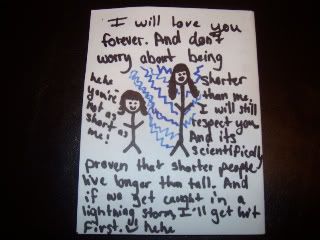 I will love you
forever. And don't
worry about being
shorter
than me.
I will still
respect you.
And its
scientifically
proven that shorter people
live longer than tall. And
if we get caught in a
lightning storm, I'll get hit
first. hehe
hehe
you're
not as
short as
me!